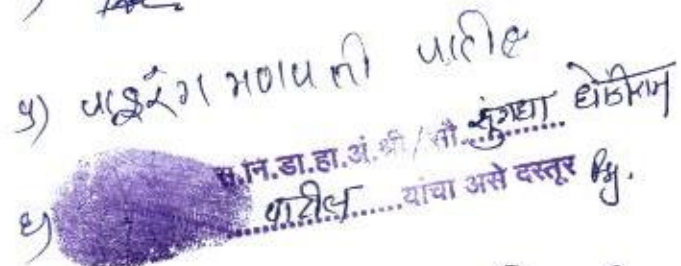 ५) पांडुरंग गणपती पाटील
स.नि.डा.हा.अं.श्री/सौ. सुंगधा धोंडीराम
६) पाटील......यांचा असे दस्तूर